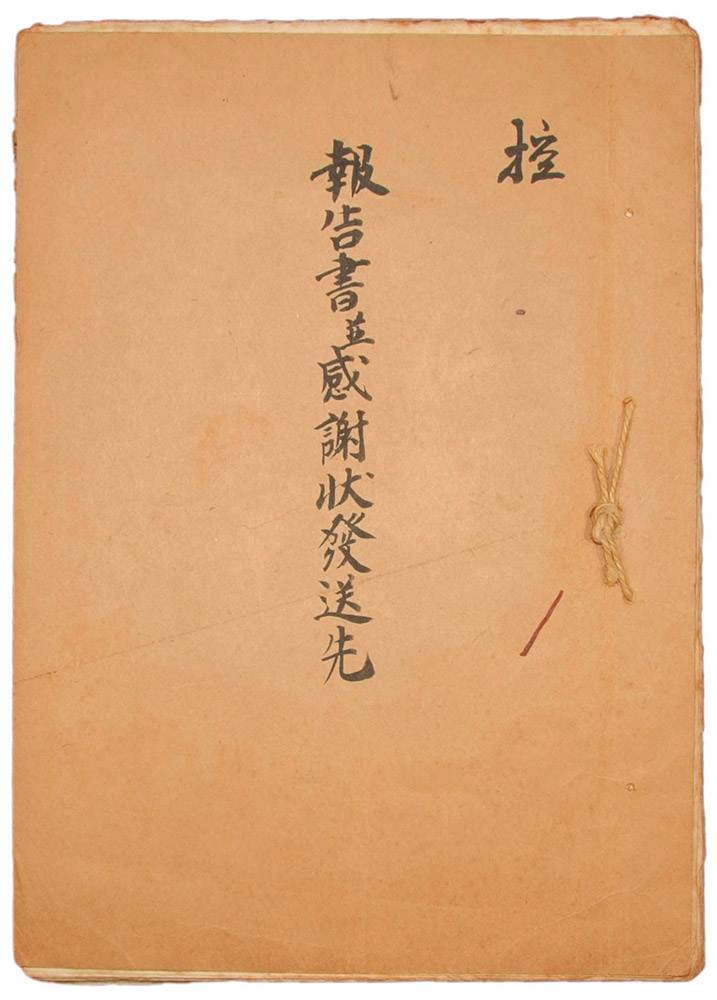 控
報告書並感謝狀發送先